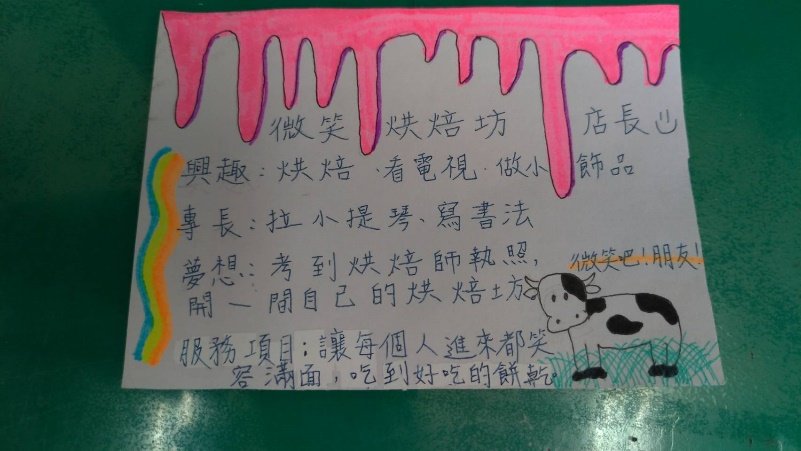 微笑 烘焙坊 店長
興趣:烘焙、看電視、做小飾品
專長:拉小提琴、寫書法
夢想:考到烘焙師執照,
開一間自己的烘焙坊
微笑吧!朋友!
服務項目:讓每個人進來都笑
容滿面,吃到好吃的餅乾。